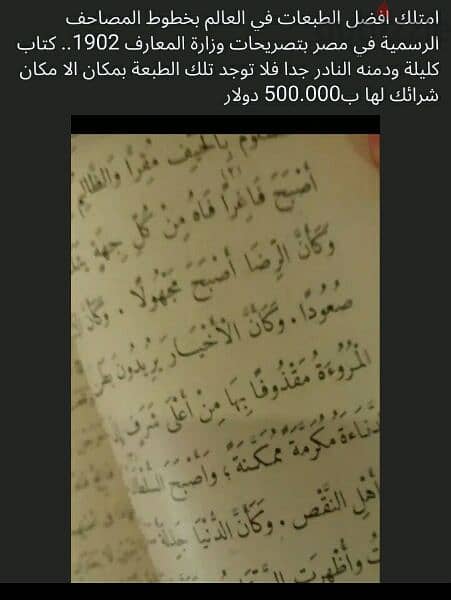 امتلك افضل الطبعات في العالم بخطوط المصاحف
الرسمية في مصر بتصريحات وزارة المعارف 1902.. كتاب
كليلة ودمنه النادر جدا فلا توجد تلك الطبعة بمكان الا مكان
شرائك لها ب500.000 دولار
بِالْحَيْفِ مُقِرًّا وَالظَّالِمُ
أَصْبَحَ فَاغِرًا فَاهُ مِنْ كُلِّ جِهَةٍ
وَكَأَنَّ الرِّضَا أَصْبَحَ مَجْهُولًا . وَكَأَنَّ
صُعُودًا . وَكَأَنَّ الْأَخْيَارَ يُرِيدُونَ بَطْنَ
الْمُرُوءَةُ مَقْذُوفًا بِهَا مِنْ أَعْلَى شَرَفٍ
مُكَرَّمَةً مُمَكَّنَةً ؛ وَأَصْبَحَ
أَهْلِ النَّقْصِ . وَكَأَنَّ الدُّنْيَا جَذِلَةٌ
وَأَظْهَرَتِ